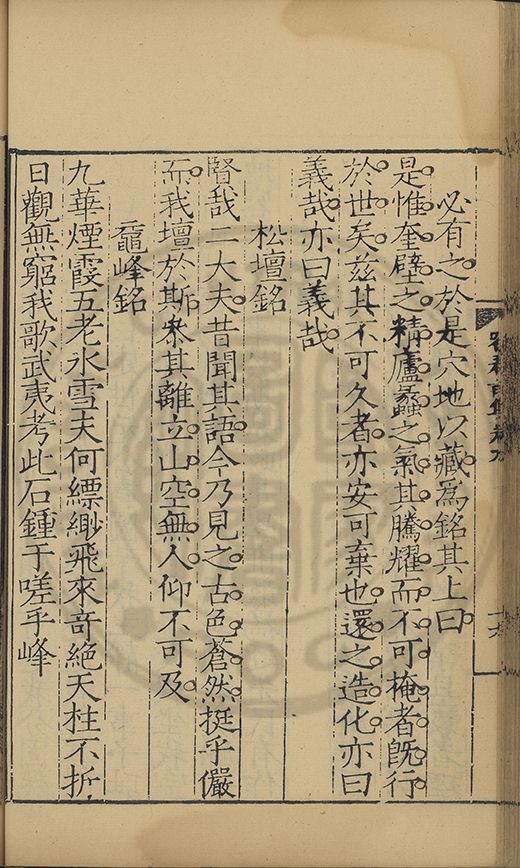 必有之於是穴地以藏爲銘其上曰
是惟奎壁之精廬蠡之氣其騰耀而不可掩者旣行
於世矣茲其不可久者亦安可棄也還之造化亦曰
義哉亦曰義哉
松壇銘
賢哉二大夫昔聞其語今乃見之古色蒼然挺乎儼
而我壇於斯叅其離立山空無人仰不可及
黿峰銘
九華煙霞五老氷雪夫何縹緲飛來奇絶天柱不折
日觀無窮我歌武夷考此石鍾于嗟乎峰